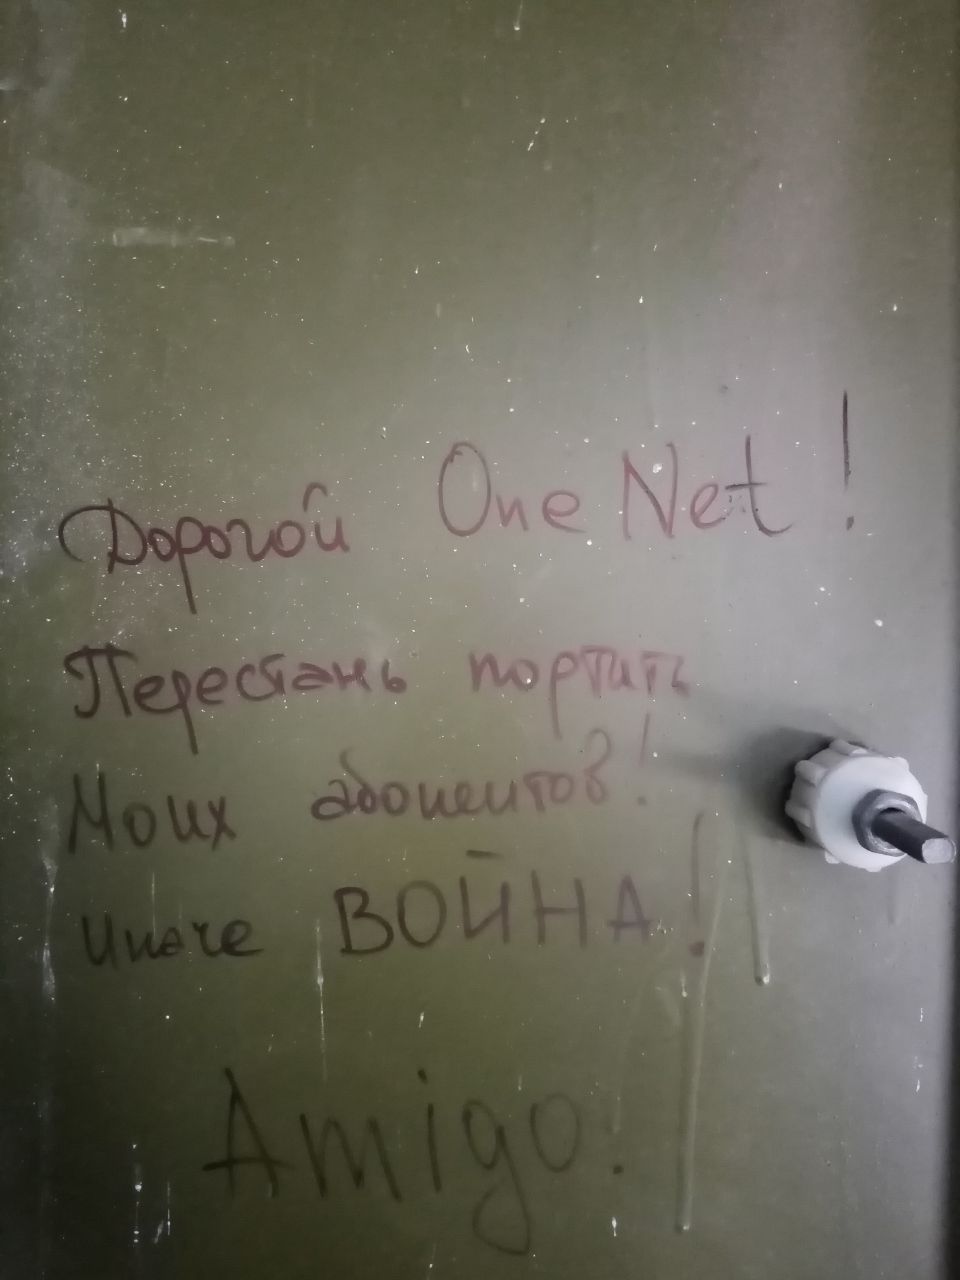 Дорогой One Net!
Перестань портить
Моих абонентов!
Иначе ВОЙНА!
Amigo.